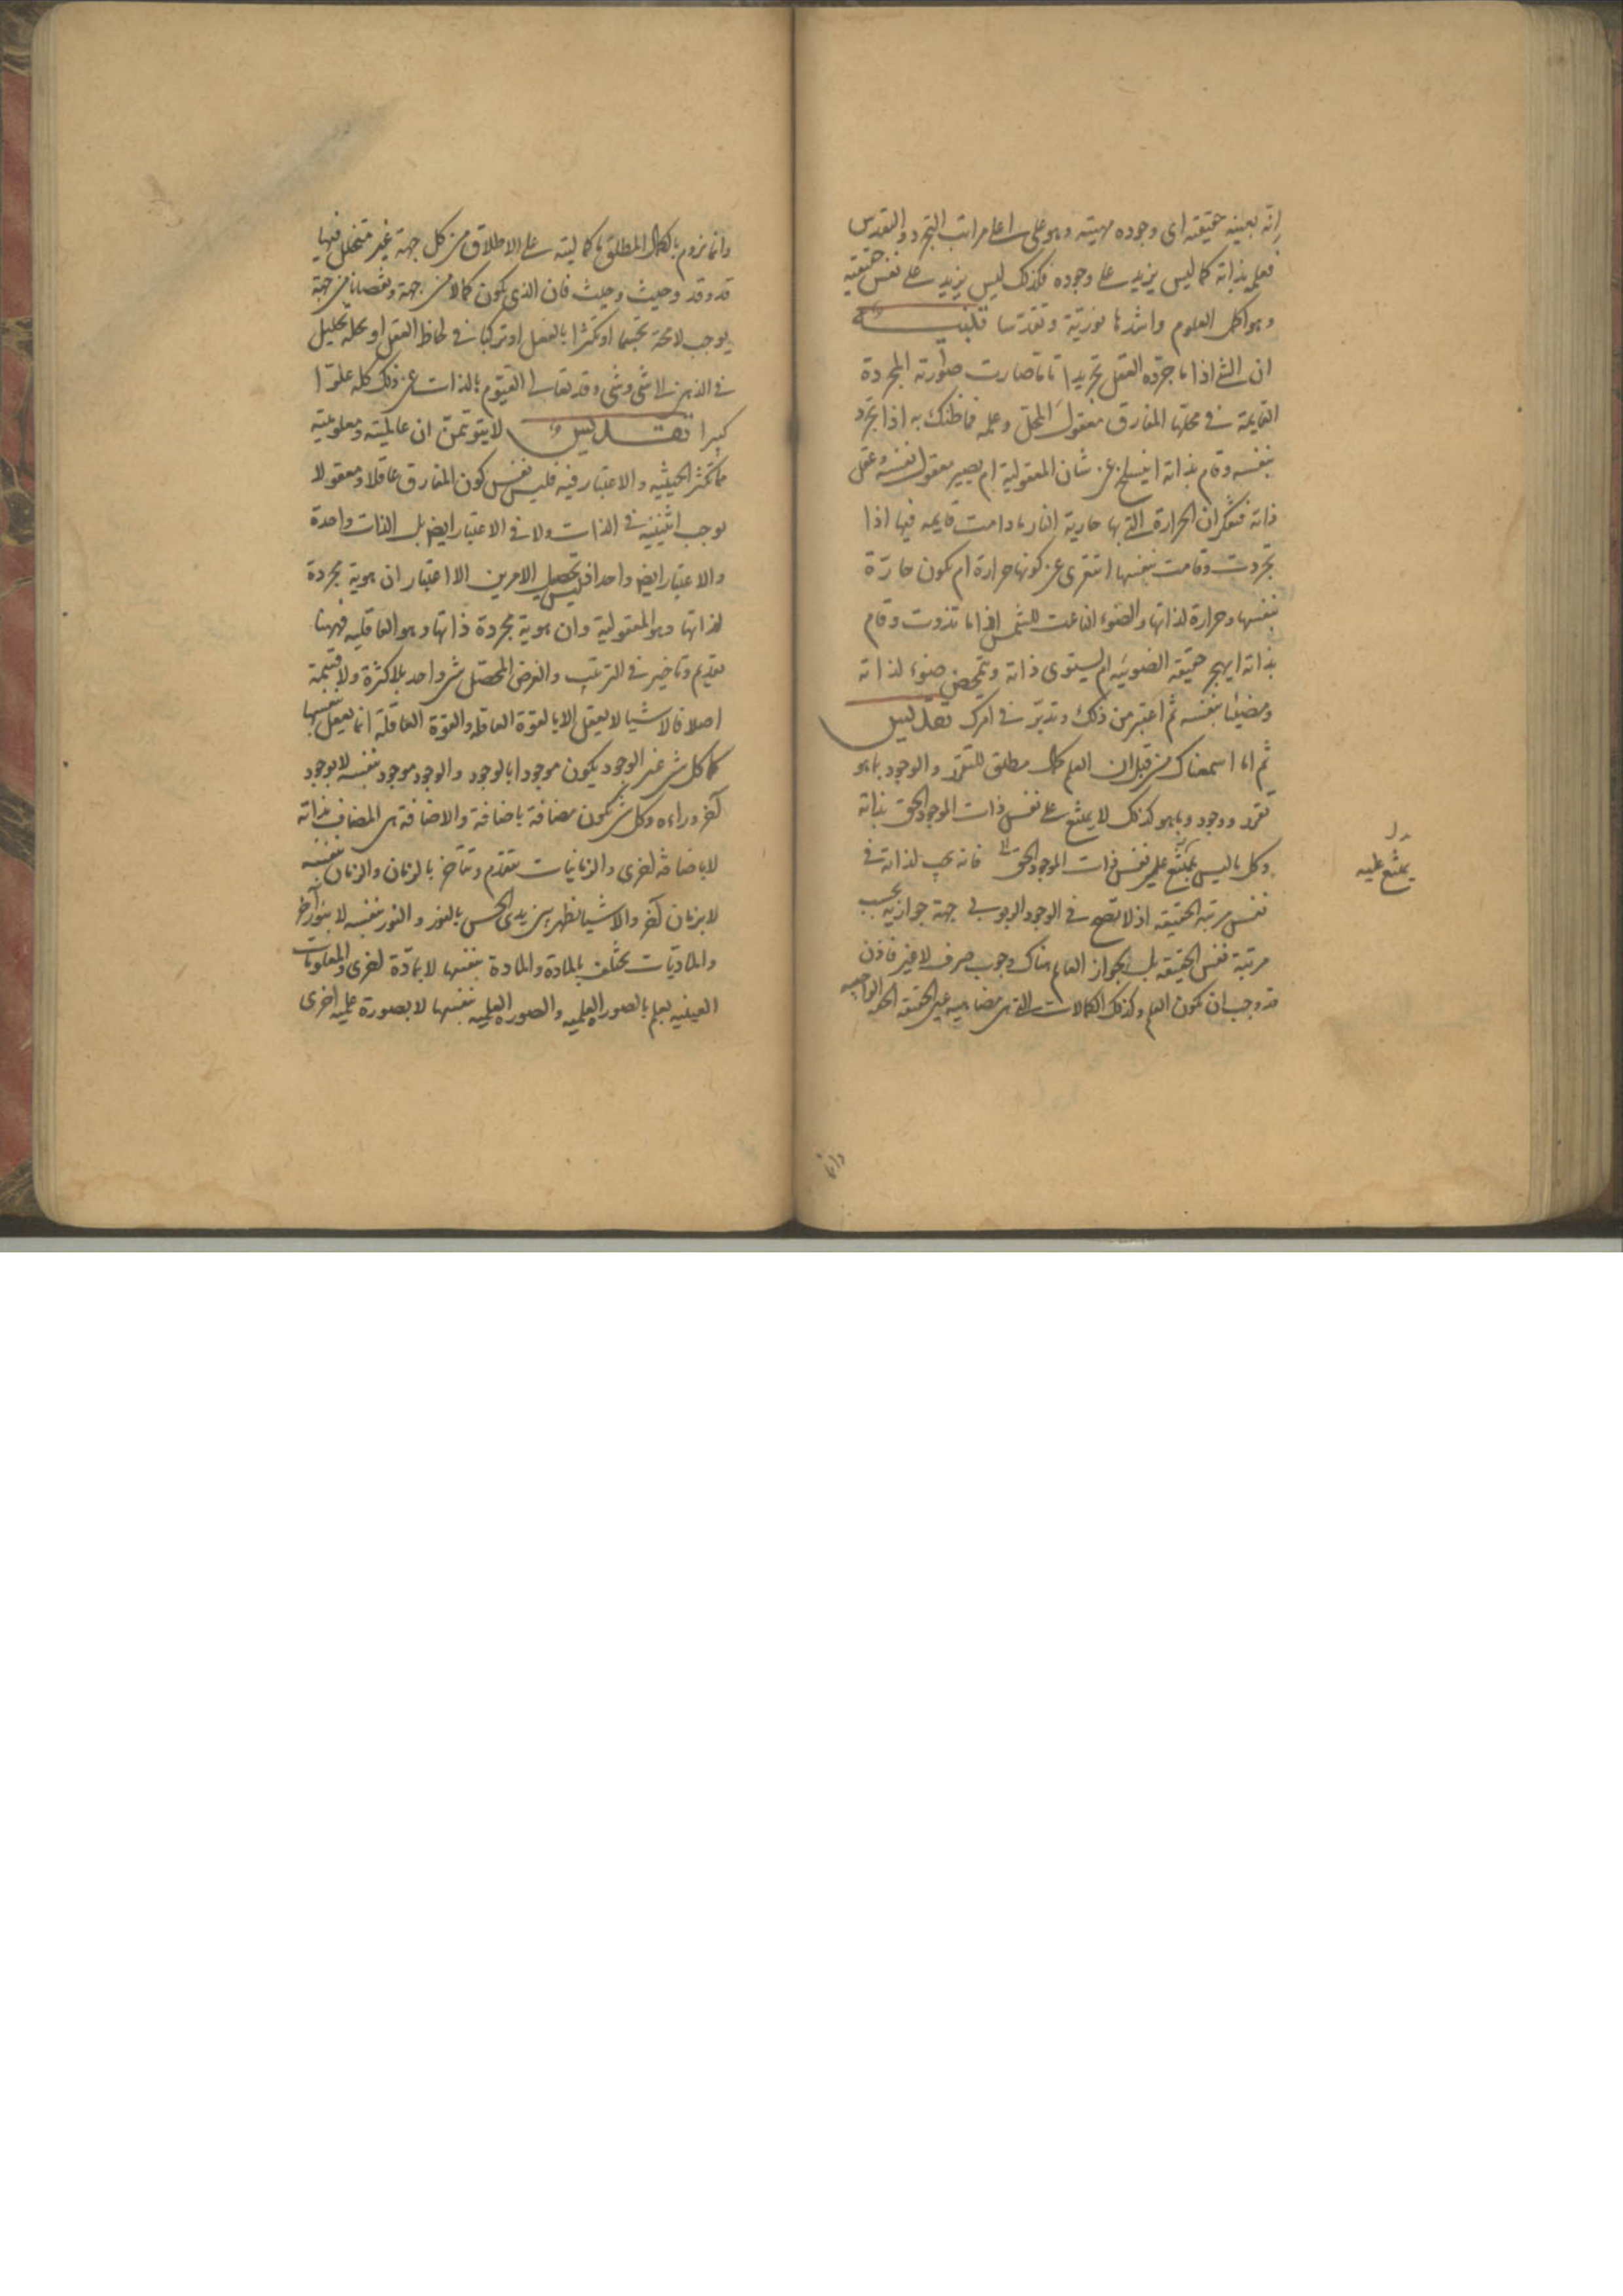 انّه بعينه حقيقته اى وجوده مهيته وهو على اعلى مراتب التجرد والتقدس
فعلمه بذاته كما ليس يزيد على وجوده فكذلك ليس يزيد على نفس حقيقته
وهو اكمل العلوم واشدها نوريّة وتقدسا
ان الشئ اذا ما جرّده العقل تجريدا تاما صارت صورته المجردة
القايمة فى محلها المفارق معقول المحل وعلمه فما ظنك به اذا تجرد
بنفسه وقام بذاته اينسلخ عن شان المعقولية ام يصير معقول نفسه وعقل
ذاته فتفكر ان الحرارة التى بها حارية النار ما دامت قايمه فيها اذا
تجردت وقامت بنفسها اتتعرى عن كونها حرارة ام تكون حارّة
بنفسها وحرارة لذاتها والضوء الناعت للشمس اذا ما تذوت وقام
بذاته ايهجر حقيقة الضوئيه ام يستوى ذاته ويتمحض ضوء لذاته
ومضيئا بنفسه ثم اعتبر من ذلك وتدبّر فى امرك
ثم اما اسمعناك من قبل ان العلم كمال مطلق للتقرر والوجود بما هو
تقرر ووجود وما هو كذلك لا يمتنع على نفس ذات الموجود الحق بذاته
وكل ما ليس يمتنع على نفس ذات الموجود الحق فانه يجب لذاته فى
نفس مرتبة الحقيقه اذ لا تصح فى الوجود الربوبى جهة جوازيه بحسب
مرتبة نفس الحقيقه بل الجواز العام هناك وجوب صرف لا غير فاذن
قد وجب ان يكون العلم وكذلك الكمالات التى هى مضاهيه عين الحقيقه الحقه الواجبيه
يمتنع عليه
وانما
وانما نروم بالكمال المطلق ما كماليته على الاطلاق من كل جهة غير متخلل فيها
قد وقد وحيث وحيث فان الذى يكون كمالا من جهة ونقصانا من جهة
يوجب لا محة تجسما او تكثرا بالفعل او تركبا فى لحاظ العقل او تحليل
فى الذهن الى شئ وشئ وقد تعالى القيّوم بالذات عن ذلك كله علوّا
كبيرا لا يتوهمن ان عالميته ومعلوميته
مما تكثر الحيثيه والاعتبار فيه فليس نفس كون المفارق عاقلا ومعقولا
يوجب اثنينية فى الذات ولا فى الاعتبار ايض بل الذات واحدة
والاعتبار ايض واحد اذ ليس تحصيل الامرين الا اعتبار ان هوية مجردة
لذاتها وهو المعقولية وان هوية مجردة ذاتها وهو العاقليه فههنا
تقديم وتاخير فى الترتيب والغرض المحصّل شئ واحد بلا كثرة ولا قسمة
اصلا فالاشيا لا يعقل الا بالقوة العاقله والقوة العاقلة انما يعقل بنفسها
كما كل شئ غير الوجود يكون موجودا بالوجود والوجود موجود بنفسه لا بوجود
آخر وراءه وكل شئ تكون مضافة باضافة والاضافة هى المضاف بذاته
لا باضافة اخرى والزمانيات تتقدّم وتتأخر بالزمان والزمان بنفسه
لا بزمان آخر والاشيا تظهر بين يدى الحس بالنور والنور بنفسه لا بنور آخر
والماديّات تختلف بالمادة والمادة بنفسها لا بمادّة اخرى والمعلومات
العينيه يعلم بالصور العلميه والصور العلميه بنفسها لا بصورة علميه اخرى